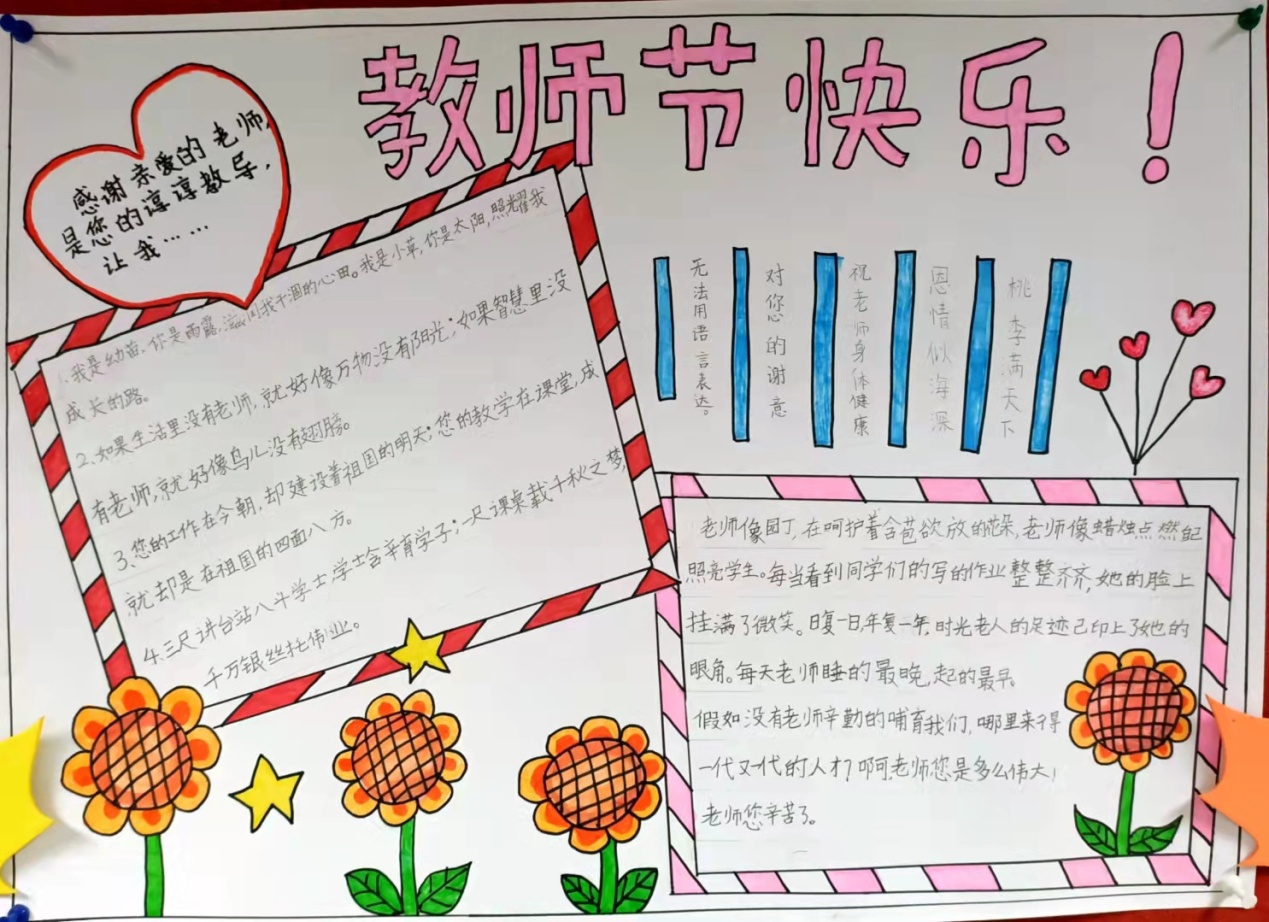 教师节快乐！
感谢亲爱的老师，
是您的谆谆教导，
让我……
1.我是幼苗，你是雨露，滋润我干涸的心田。我是小草，你是太阳，照耀我
成长的路。
2.如果生活里没有老师，就好像万物没有阳光；如果智慧里没
有老师，就好像鸟儿没有翅膀。
3.您的工作在今朝，却建设着祖国的明天；您的教学在课堂，成
就却是在祖国的四面八方。
4.三尺讲台站八斗学士，学士含辛育学子；一尺课桌载千秋之梦，
千万银丝托伟业。
无法用语言表达。
对您的谢意
祝老师身体健康
恩情似海深
桃李满天下
老师像园丁，在呵护着含苞欲放的花朵，老师像蜡烛点燃自己
照亮学生。每当看到同学们的写的作业整整齐齐，她的脸上
挂满了微笑。日复一日，年复一年，时光老人的足迹已印上了她的
眼角。每天老师睡的最晚，起的最早。
假如没有老师辛勤的哺育我们，哪里来得
一代又一代的人才？啊老师您是多么伟大！
老师您辛苦了。